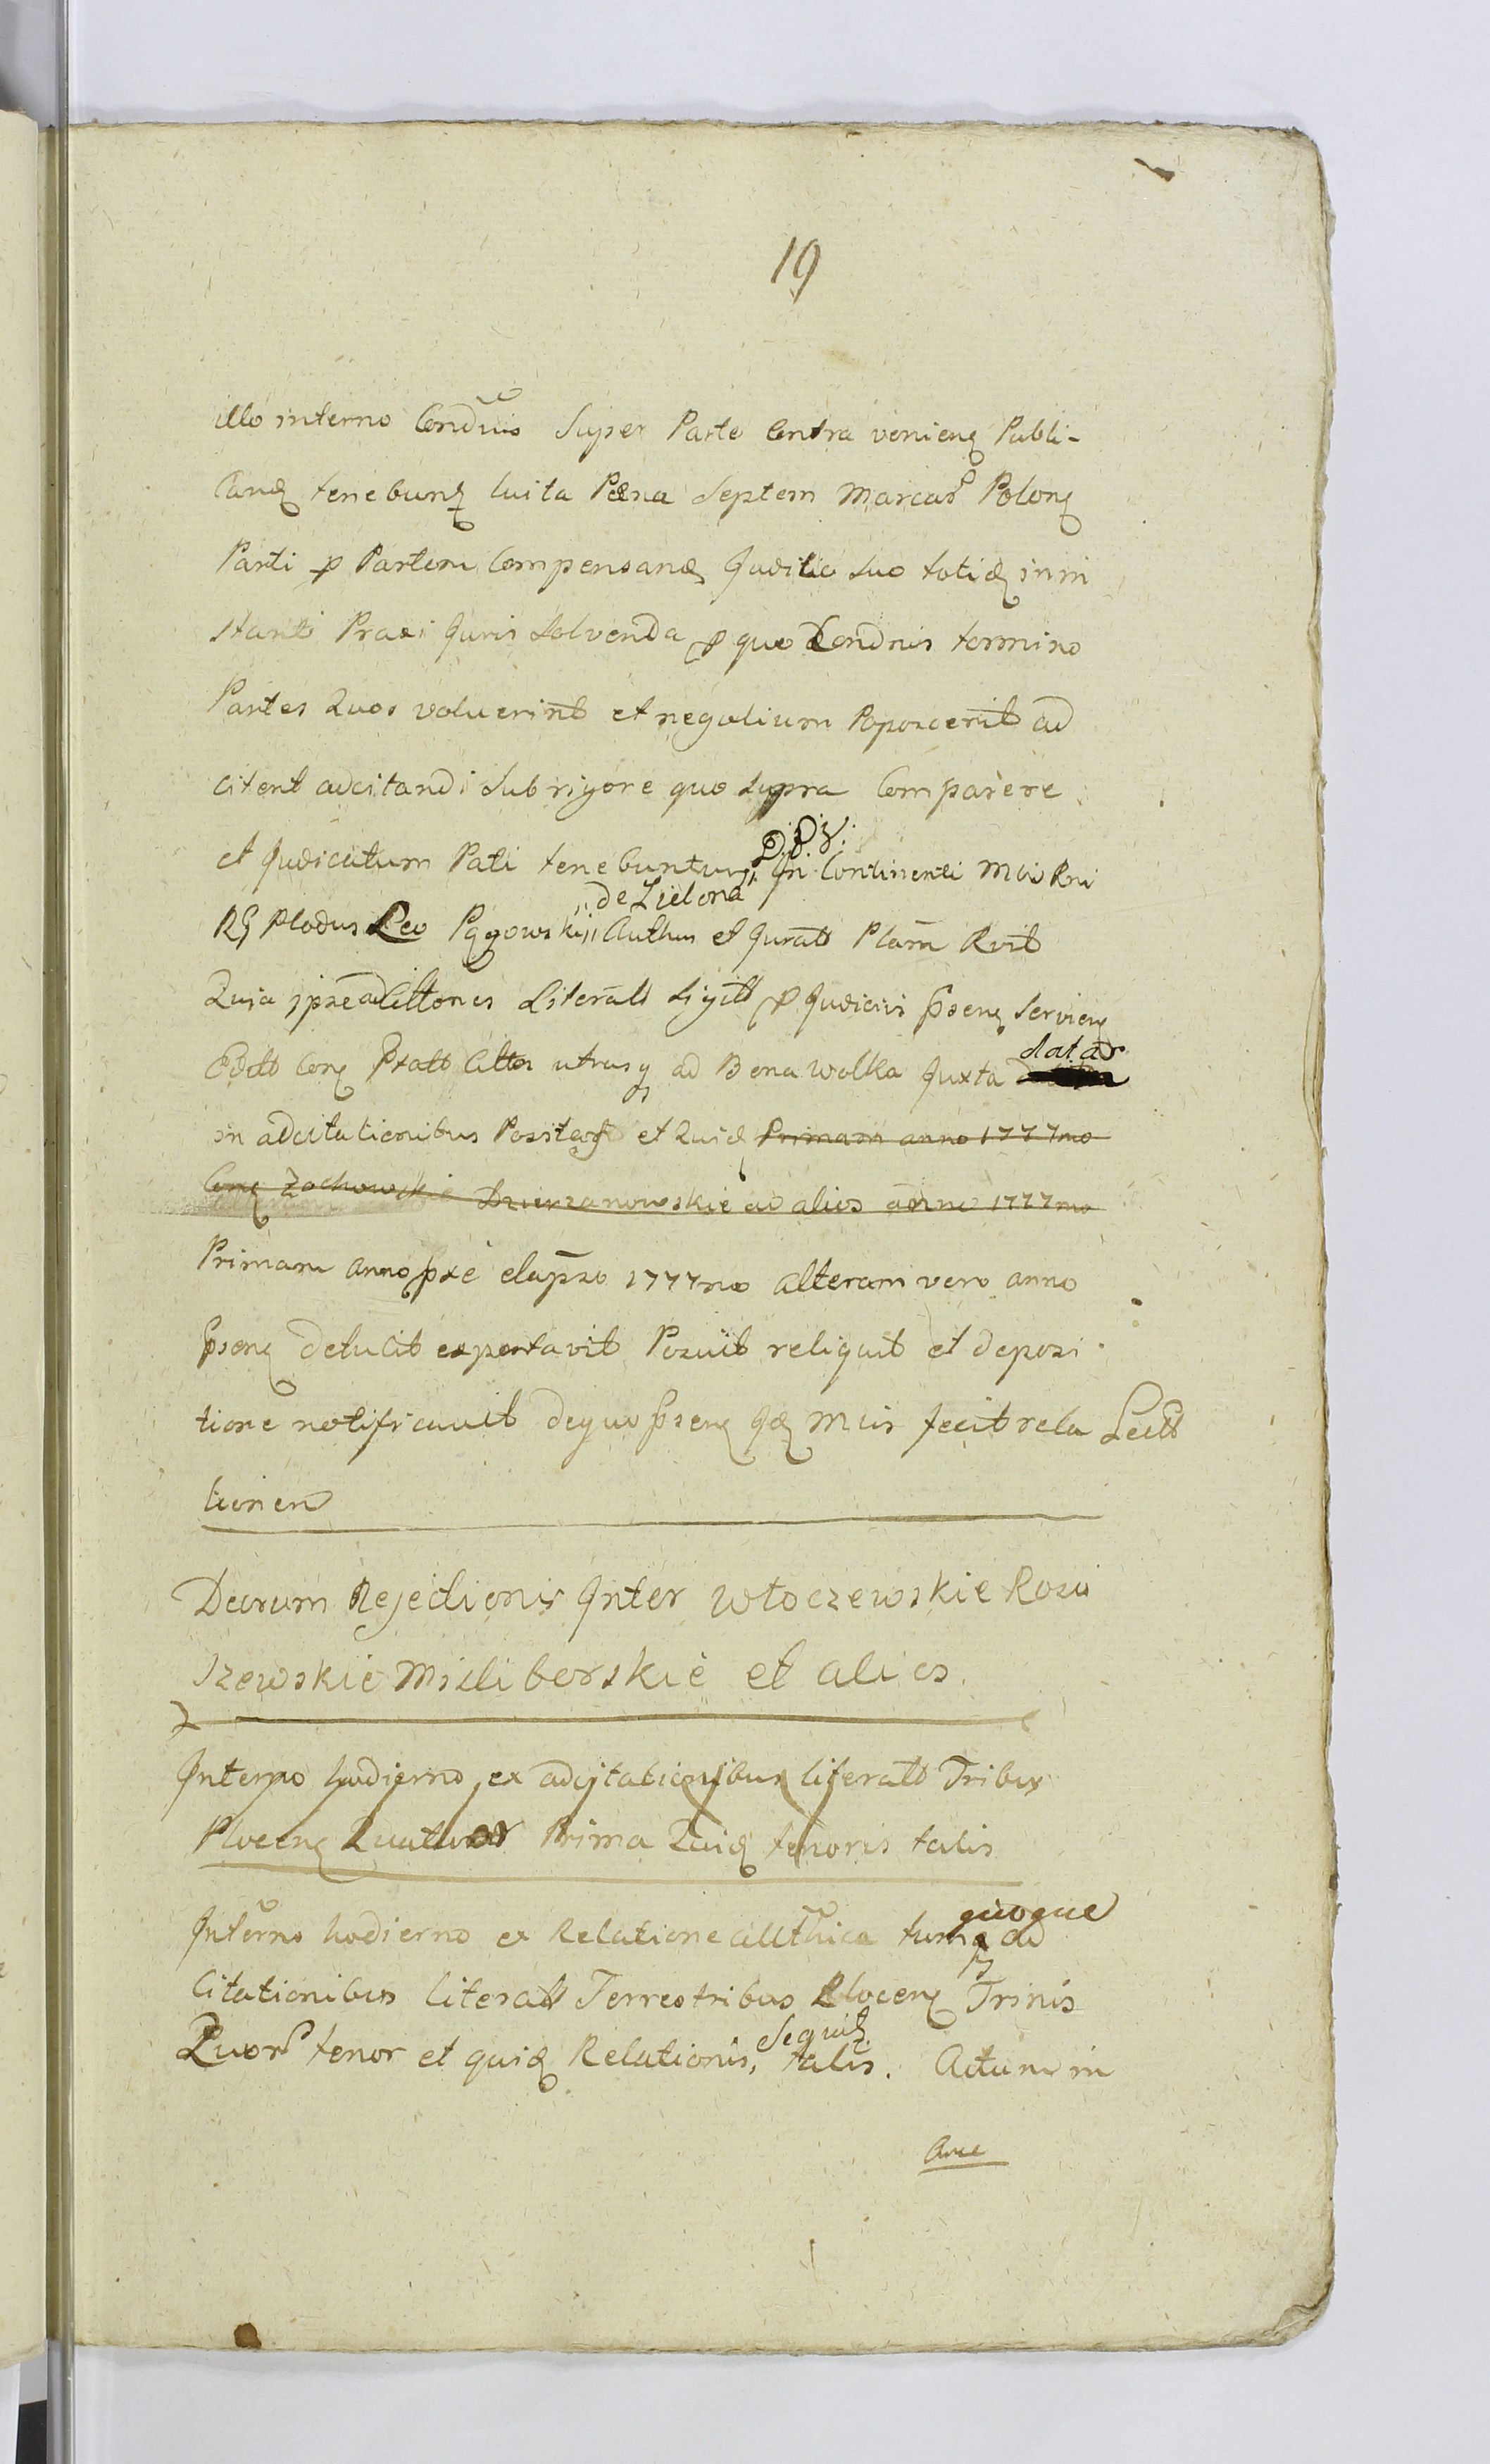 19
illo interno Condnis Super Parte Contra venienꝫ Publi-
Canꝫ tenebunꝫ luita Pæna Septem Marcar Polonꝫ
Parti p Partem Compensanꝫ Judicio Suo totidꝫ inin
stanti Praxi Juris Solvenda p quo Condnis termino
Partes Quos voluerint et negotium Poposcerit ad
citent adcitandi Sub rigore quo supra Comparere
et Judicatum Pati tenebuntur D: D: Z: In Continenti Mais Rni
Rꝫ Plodus Leo Pągowski „de Zielona" Authus et Jurats Plam Rvit
Quia ipse adCittones Literats Sigitt p Judiciis pꝛsenꝫ Servienꝫ
Editt Conꝫ Pxatt Cittos utrasq ad Bona Wolka Juxta datar
in adcitationibus Positar et Quidꝫ Primam anno 1777mo
Conꝫ Zochowskie Dzierzanowskie ad alios anno 1777mo
Primam anno pxe elapso 1777mo alteram vero anno
pꝛsenꝫ detulit exportavit Posuit reliquit et deposi
tione notificavit dequo pꝛsenꝫ Jdꝫ Mis fecit rela Lectt
tionem
Decrum Rejectionis Inter Włoczewskie Rosci
szewskie Misliborskie et alios.
Interno hodierno ex adcitationibus literatt Tribus
Plocenꝫ Quatuor Prima Quidꝫ tenoris talis
Interno hodierno ex Relatione authica tum quoque ad
Citationibus literatt Terrestribus Plocenꝫ Trinis
Quor tenor et quidꝫ Relationis, sequitꝫ talis. Actum in
Arce